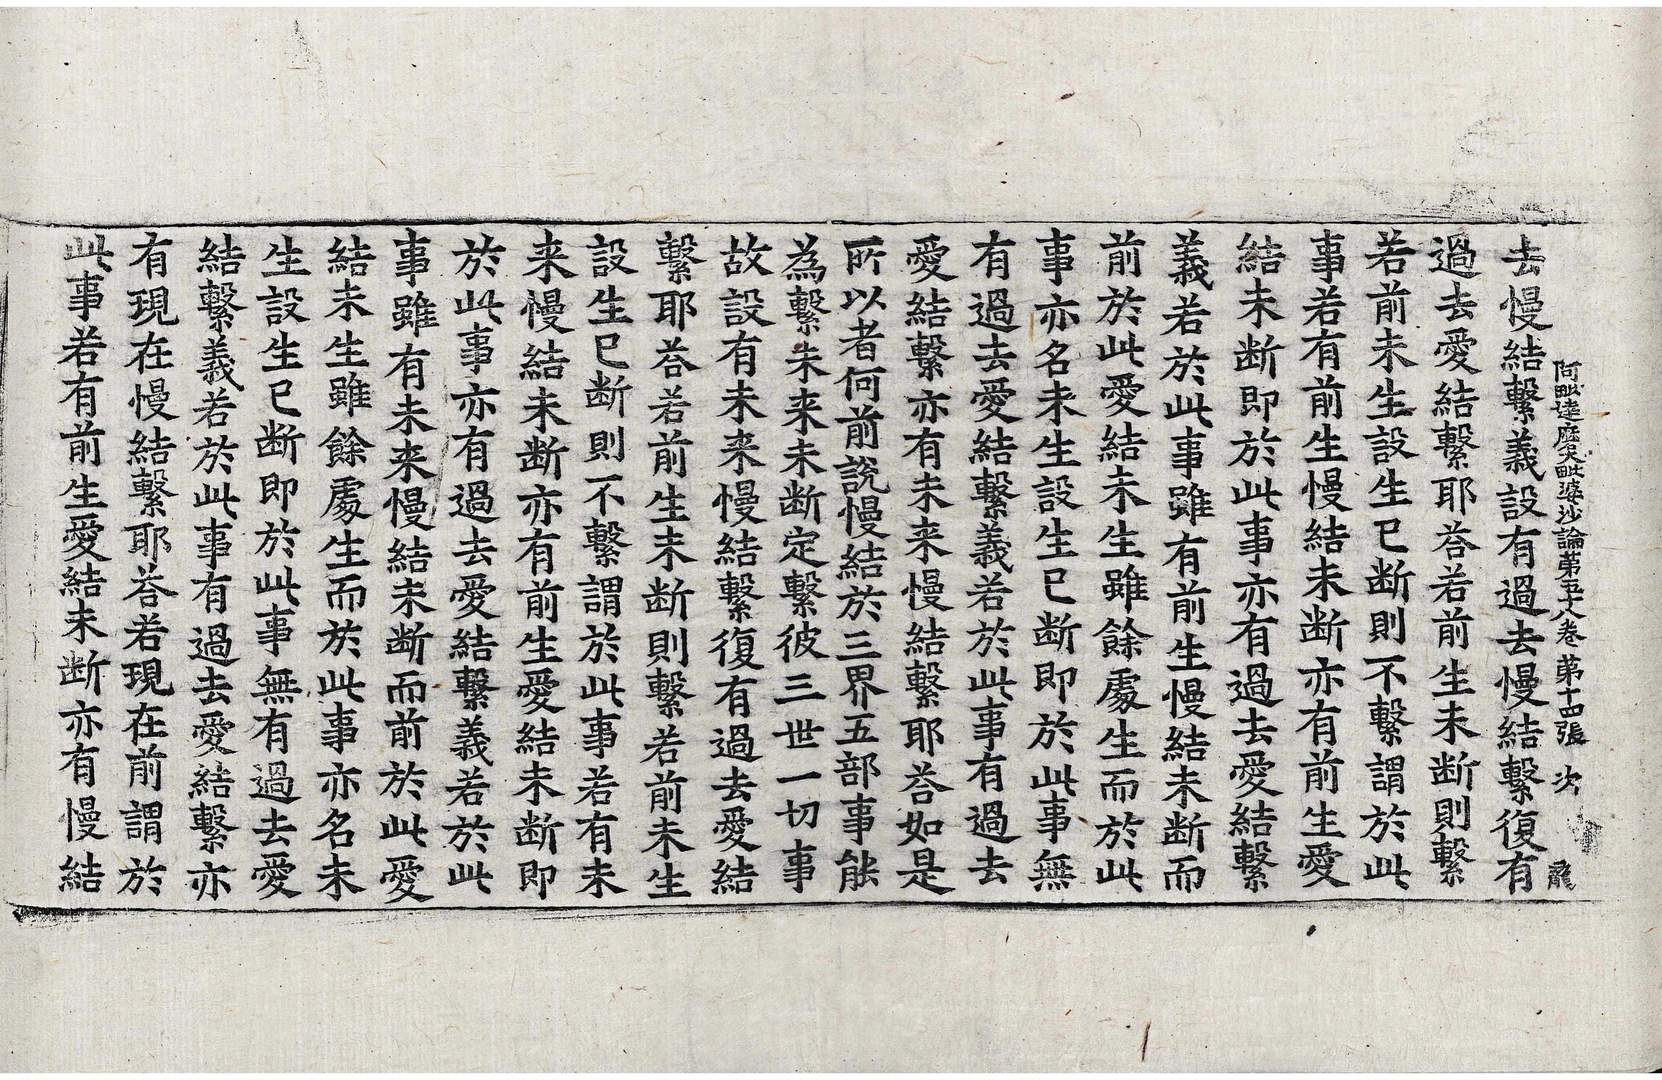 阿毗達磨大毗婆沙論第五十八卷 第十四張 次 龍
去慢結繫義設有過去慢結繫復有
過去愛結繫耶荅若前生未断則繫
若前未生設生已断則不繫謂於此
事若有前生慢結未断亦有前生愛
結未断即於此事亦有過去愛結繫
義若於此事雖有前生慢結未断而
前於此愛結未生雖餘處生而於此
事亦名未生設生已断即於此事無
有過去愛結繫義若於此事有過去
愛結繫亦有未来慢結繫耶荅如是
所以者何前說慢結於三界五部事能
為繫未来未断定繫彼三世一切事
故設有未来慢結繫復有過去愛結
繫耶荅若前生未断則繫若前未生
設生已断則不繫謂於此事若有未
来慢結未断亦有前生愛結未断即
於此事亦有過去愛結繫義若於此
事雖有未来慢結未断而前於此愛
結未生雖餘處生而於此事亦名未
生設生已断即於此事無有過去愛
結繫義若於此事有過去愛結繫亦
有現在慢結繫耶荅若現在前謂於
此事若有前生愛結未断亦有慢結